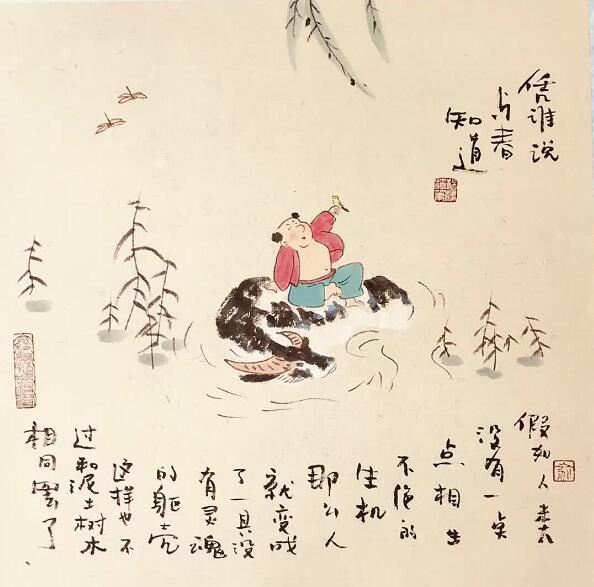 凭谁说
与春
知道
假如人
没有一点
点相生
不绝的
生机
那么人
就变成
了一具没
有灵魂
的躯壳
这样也不
过和泥土树木
相同罢了